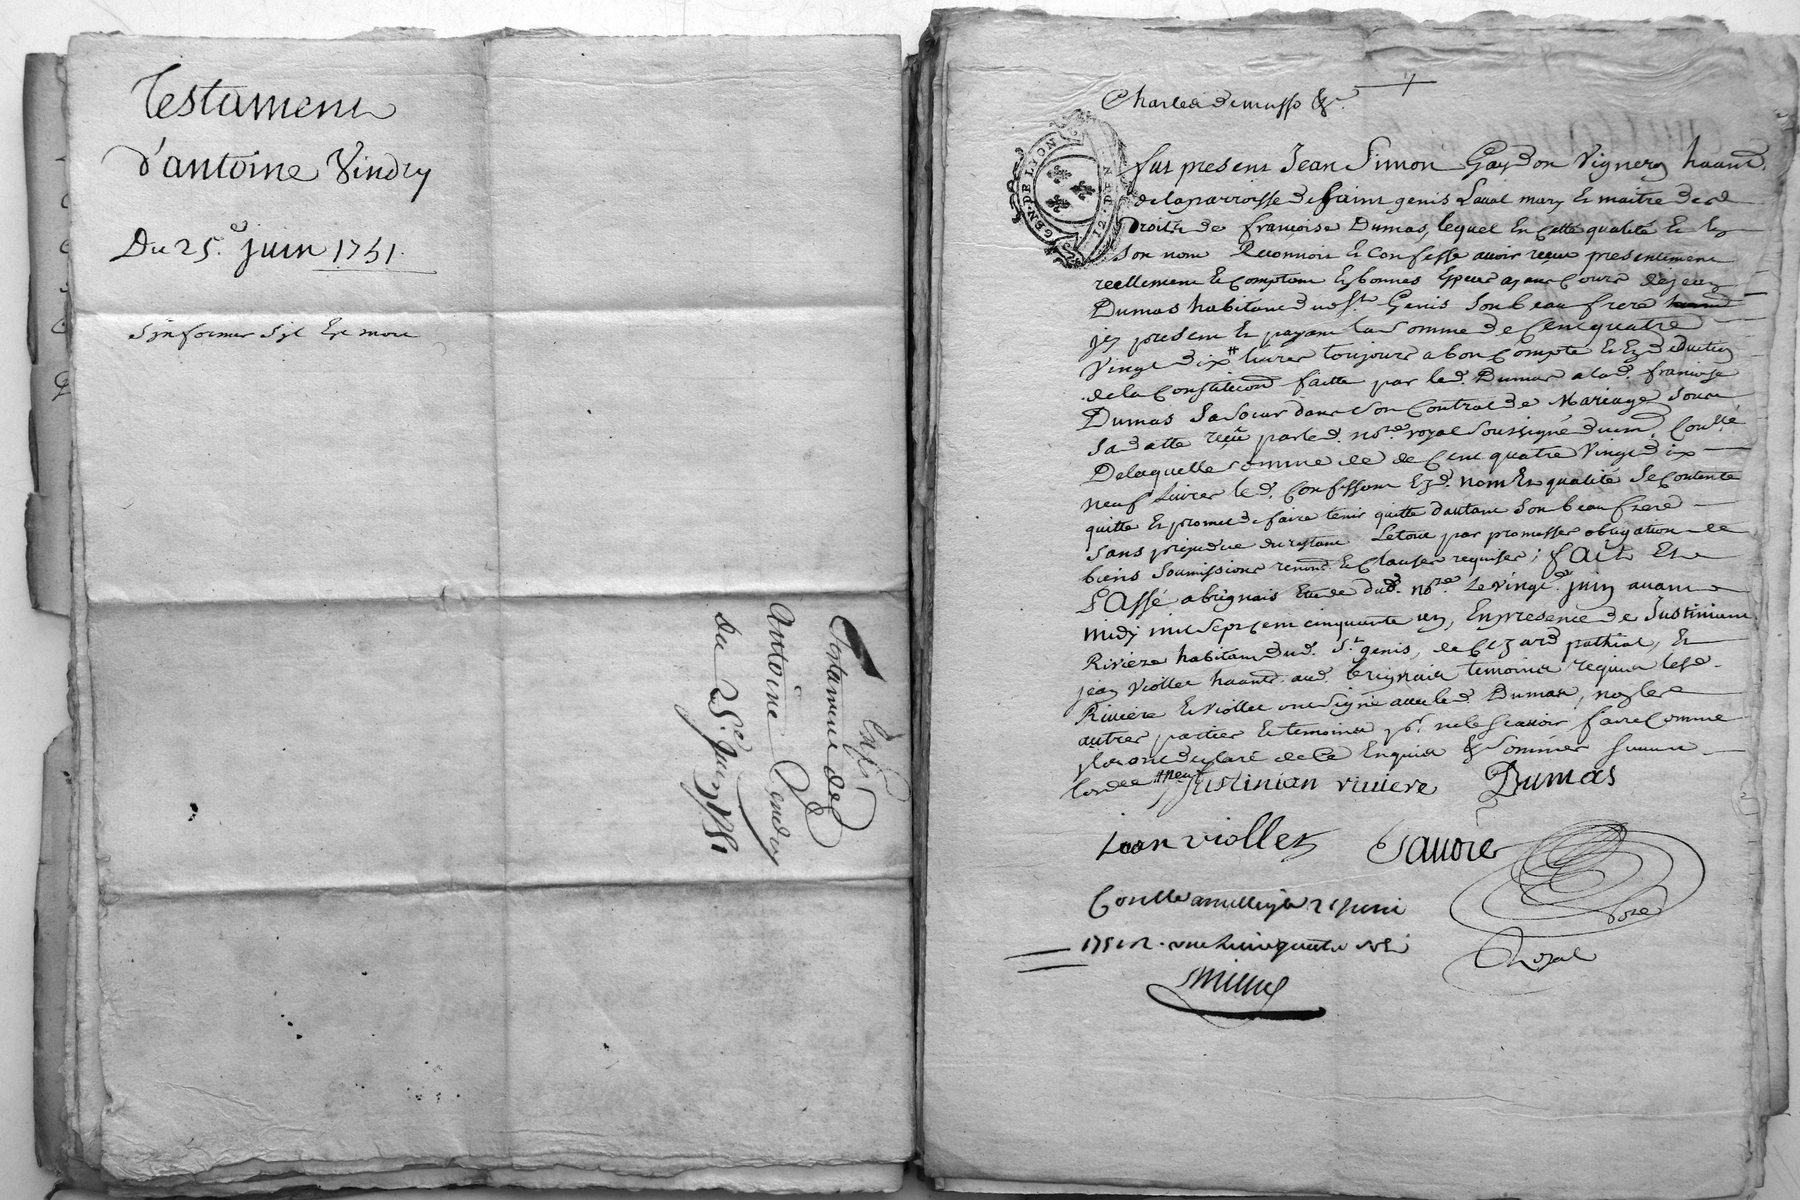 Testament
d'antoine Vindry
Du 25.e juin 1751.
S'informer s'jl Est mort
Exp.é
Testament de
Antoine Vendry
du 25.e Juin 1751
Charles Demasso &c.
GEN. DE LION
12. DEN
fut present Jean Simon Gaydon Vigneron haant.
de la parroisse de saint genis Laval mary Et maitre des d.
Droits de francoise Dumas, lequel En Cette qualité Et En
Son nom Reconnoit Et Confesse avoir reçeu presentement
reellement Et Comptant En bonnes Especes ayant Cours de jean
Dumas habitant dud. St. Genis Son beau frere
jcy present Et payant La Somme de Cent quatre
Vingt dix # livres toujours a bon Compte Et En deduction
de la Constitution faitte par led. Dumas a lad. francoise
Dumas Sa Soeur dans Son Contrat de Mariage Sous
Sa datte reçu par led. no.re royal Soussigné duem. Coullé
De laquelle Somme de Cent quatre Vingt dix
neuf Livres led. Confessant End. nom Et qualité Se Contente
quitte Et promet de faire tenir quitte d'autant Son beau frere
Sans prejudice du restant Le tout par promesses obligation de
biens Soumissions renon.s Et Clauses requises; fait Et
PAssé a brignais Etude dud. no.re Le vingt juin avant
midy mil Sept Cent cinquante un, En presence de Justinient
Riviere habitant dud. St. genis, de Cezard pathiat, Et
jean Viollet haant. aud. brignais temoins requis Lesd.
Riviere Et Viollet ont Signé avec led. Dumas, non les
autres parties Et temoins p.r ne le Scavoir faire Comme
jls ont declaré de Ce Enquis & Sommés Suivant
Lord.e # neuf
justinian riviere Dumas
iean viollet
Savoie
Coullé a millery le 21 juin
1751 R. une Livre quatre sols
Noe
Royal